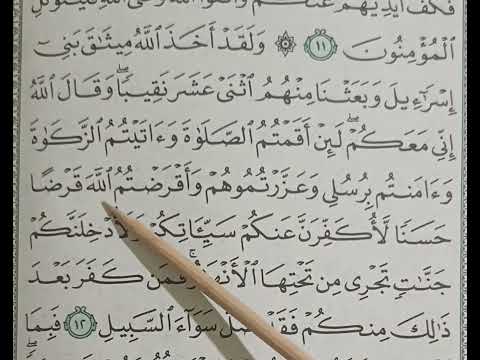 فَكَفَّ أَيْدِيَهُمْ عَنكُمْ
ٱلْمُؤْمِنُونَ ١١ ۞ وَلَقَدْ أَخَذَ ٱللَّهُ مِيثَٰقَ بَنِىٓ
إِسْرَٰٓءِيلَ وَبَعَثْنَا مِنْهُمُ ٱثْنَىْ عَشَرَ نَقِيبًا ۖ وَقَالَ ٱللَّهُ
إِنِّى مَعَكُمْ ۖ لَئِنْ أَقَمْتُمُ ٱلصَّلَوٰةَ وَءَاتَيْتُمُ ٱلزَّكَوٰةَ
وَءَامَنتُم بِرُسُلِى وَعَزَّرْتُمُوهُمْ وَأَقْرَضْتُمُ ٱللَّهَ قَرْضًا
حَسَنًا لَّأُكَفِّرَنَّ عَنكُمْ سَيِّـَٔاتِكُمْ وَلَأُدْخِلَنَّكُمْ
جَنَّٰتٍ تَجْرِى مِن تَحْتِهَا ٱلْأَنْهَٰرُ ۚ فَمَن كَفَرَ بَعْدَ
ذَٰلِكَ مِنكُمْ فَقَدْ ضَلَّ سَوَآءَ ٱلسَّبِيلِ ١٢ فَبِمَا